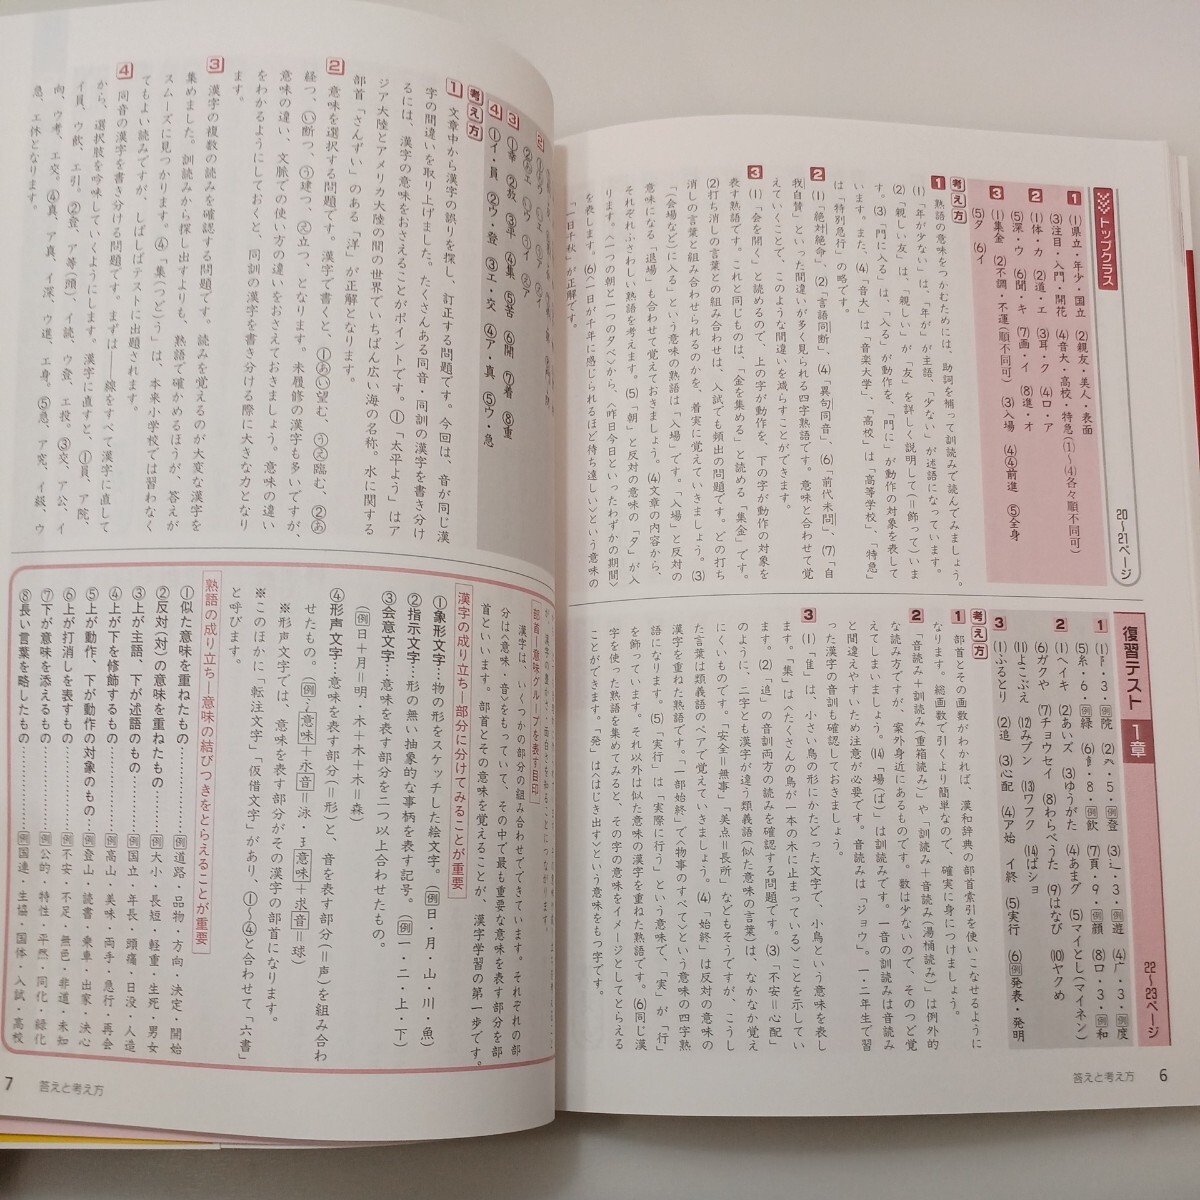 トップクラス
20〜21ページ
1 (1)県立・年少・国立 (2)親友・美人・表面
(3)注目・入門・開花 (4)音大・高校・特急((1)、(4)各々順不同可)
2 (1)体・カ (2)道・エ (3)耳・ク (4)口・ア
(5)深・ウ (6)聞・キ (7)画・イ (8)進・オ
3 (1)集金 (2)不調・不運(順不同可) (3)入場 (4)④前進 ⑤全身
(5)夕 (6)イ
考え方
1 熟語の意味をつかむためには、助詞を補って訓読みで読んでみましょう。
(1)「年が少ない」は、「年が」が主語、「少ない」が述語になっています。
(2)「親しい友」は、「親しい」が「友」を詳しく説明して(=飾って)いま
す。(3)「門に入る」は、「入る」が動作を、「門に」が動作の対象を表して
います。また、(4)「音大」は「音楽大学」、「高校」は「高等学校」、「特急」
は「特別急行」の略です。
2 (1)「絶対絶命」、(2)「言語同断」、(4)「異句同音」、(6)「前代未問」、(7)「自
我自賛」といった間違いが多く見られる四字熟語です。意味と合わせて覚
えていくことで、このような間違いを減らすことができます。
3 (1)「会を開く」と読めるので、上の字が動作を、下の字が動作の対象を
表す熟語です。これと同じものは、「金を集める」と読める「集金」です。
(2)打ち消しの言葉との組み合わせは、入試でも頻出の問題です。どの打ち
消しの言葉と組み合わせられるのかを、着実に覚えていきましょう。(3)
「(会場などに)入る」という意味の熟語は「入場」です。「入場」と反対の
意味になる「退場」も合わせて覚えておきましょう。(4)文章の内容から、
それぞれふさわしい熟語を考えます。(5)「朝」と反対の意味の「夕」が入
ります。〈一つの朝と一つの夕べ〉から、〈昨日今日といったわずかの期間〉
を表します。(6)〈一日が千年に感じられるほど待ち遠しい〉という意味の
「一日千秋」が正解です。
復習テスト 1章
22〜23ページ
1 (1)阝・3・例院 (2)癶・5・例登 (3)辶・3・例遊 (4)广・3・例度
(5)糸・6・例緑 (6)飠・8・例飲 (7)頁・9・例顔 (8)口・3・例和
2 (1)ヘイキ (2)あいズ (3)ゆうがた (4)あまグ (5)マイとし(マイネン)
(6)ガクや (7)チョウセイ (8)わらべうた (9)はなび (10)ヤクめ
(11)よこぶえ (12)みブン (13)ワフク (14)ばショ
3 (1)ふるとり (2)追 (3)心配 (4)ア始 イ終 (5)実行 (6)例発表・発明
考え方
1 部首とその画数がわかれば、漢和辞典の部首索引を使いこなせるように
なります。総画数で引くより簡単なので、確実に身につけましょう。
2 「音読み+訓読み(重箱読み)」や「訓読み+音読み(湯桶読み)」は例外的
な読み方ですが、案外身近にあるものです。数は少ないので、そのつど覚
えてしまいましょう。(14)「場(ば)」は訓読みです。一音の訓読みは音読み
と間違えやすいため注意が必要です。音読みは「ジョウ」。一・二年生で習
った漢字の音訓も確認しておきましょう。
3 (1)「隹」は、小さい鳥の形にかたどった文字で、小鳥という意味を表し
ます。「集」は〈たくさんの鳥が一本の木に止まっている〉ことを示してい
ます。(2)「追」の音訓両方の読みを確認する問題です。(3)「不安=心配」
のように、二字とも漢字が違う類義語(似た意味の言葉)は、なかなか覚え
にくいものです。「安全=無事」「美点=長所」などもそうですが、こうし
た言葉は類義語のペアで覚えていきましょう。(4)「始終」は反対の意味の
漢字を重ねた熟語です。「一部始終」で〈物事のすべて〉という意味の四字熟
語になります。(5)「実行」は「実際に行う」ということで、「実」が「行」
を飾っています。それ以外は似た意味の漢字を重ねた熟語です。(6)同じ漢
字を使った熟語を集めてみると、その字の意味をイメージとしてとらえる
ことができます。「発」は〈はじき出す〉という意味をもつ字です。
答えと考え方 6
3 ①幸 ②放 ③卓 ④集 ⑤苦 ⑥開 ⑦着 ⑧重
4 ①イ・員 ②ウ・登 ③エ・交 ④ア・真 ⑤ウ・急
考え方
1 文章中から漢字の誤りを探し、訂正する問題です。今回は、音が同じ漢
字の間違いを取り上げました。たくさんある同音・同訓の漢字を書き分け
るには、漢字の意味をおさえることがポイントです。①「太平よう」はア
ジア大陸とアメリカ大陸の間の世界で、ちばん広い海の名称。水に関する
部首「さんずい」のある「洋」が正解となります。
2 意味を選択する問題です。漢字で書くと、①あい望む、う臨む、②あ
経つ、い断つ、う建つ、え立つ、となります。未履修の漢字も多いですが、
意味の違い、文脈での使い方の違いをおさえておきましょう。意味の違い
をわかるようにしておくと、同訓の漢字を書き分ける際に大きな力となり
ます。
3 漢字の複数の読みを確認する問題です。読みを覚えるのが大変な漢字を
集めました。訓読みから探し出すよりも、熟語で確かめるほうが、答えが
スムーズに見つかります。④「集(つど)う」は、本来小学校では習わなく
てもよい読みですが、しばしばテストに出題されます。
4 同音の漢字を書き分ける問題です。まずは――線をすべて漢字に直して
から、選択肢を吟味していくようにします。漢字に直すと、①員、ア院、
イ員、ウ飲、エ引。②登、ア等(頭)、イ読、ウ登、エ投。③交、ア公、イ
向、ウ考、エ交。④真、ア真、イ深、ウ進、エ身。⑤急、ア究、イ級、ウ
急、エ休となります。
部首―意味グループを表す目印
漢字は、いくつかの部分の組み合わせでできています。それぞれの部
分は〈意味・音をもっていて、その中で最も重要な意味を表す部分を部
首といいます。部首とその意味を覚えることが、漢字学習の第一歩です。
漢字の成り立ち―部分に分けてみることが重要
①象形文字…物の形をスケッチした絵文字。(例日・月・山・川・魚)
②指示文字…形の無い抽象的な事柄を表す記号。(例一・二・上・下)
③会意文字…意味を表す部分を二つ以上合わせたもの。
(例日+月=明・木+木+木=森)
④形声文字…意味を表す部分(=形)と、音を表す部分(=声)を組み合わ
せたもの。(例氵意味+永音=泳・王意味+求音=球)
※形声文字では、意味を表す部分がその漢字の部首になります。
※このほかに「転注文字」「仮借文字」があり、①〜④と合わせて「六書」
と呼びます。
熟語の成り立ち―意味の結びつきをとらえることが重要
①似た意味を重ねたもの……例道路・品物・方向・決定・開始
②反対(対)の意味を重ねたもの……例大小・長短・軽重・生死・男女
③上が主語、下が述語のもの……例国立・年長・頭痛・日没・人造
④上が下を修飾するもの……例高山・美味・両手・急行・再会
⑤上が動作、下が動作の対象のもの…例登山・読書・乗車・出家・決心
⑥上が打消しを表すもの……例不安・不足・無色・非道・未知
⑦下が意味を添えるもの……例公的・特性・平然・同化・緑化
⑧長い言葉を略したもの……例国連・生協・国体・入試・高校
7 答えと考え方